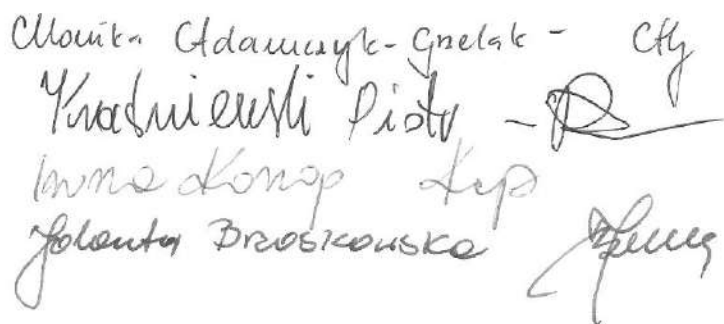 Monika Adamczyk-Grzelak -
Kraśniewski Piotr -
Iwona Konop
Jolanta Brzoskowska